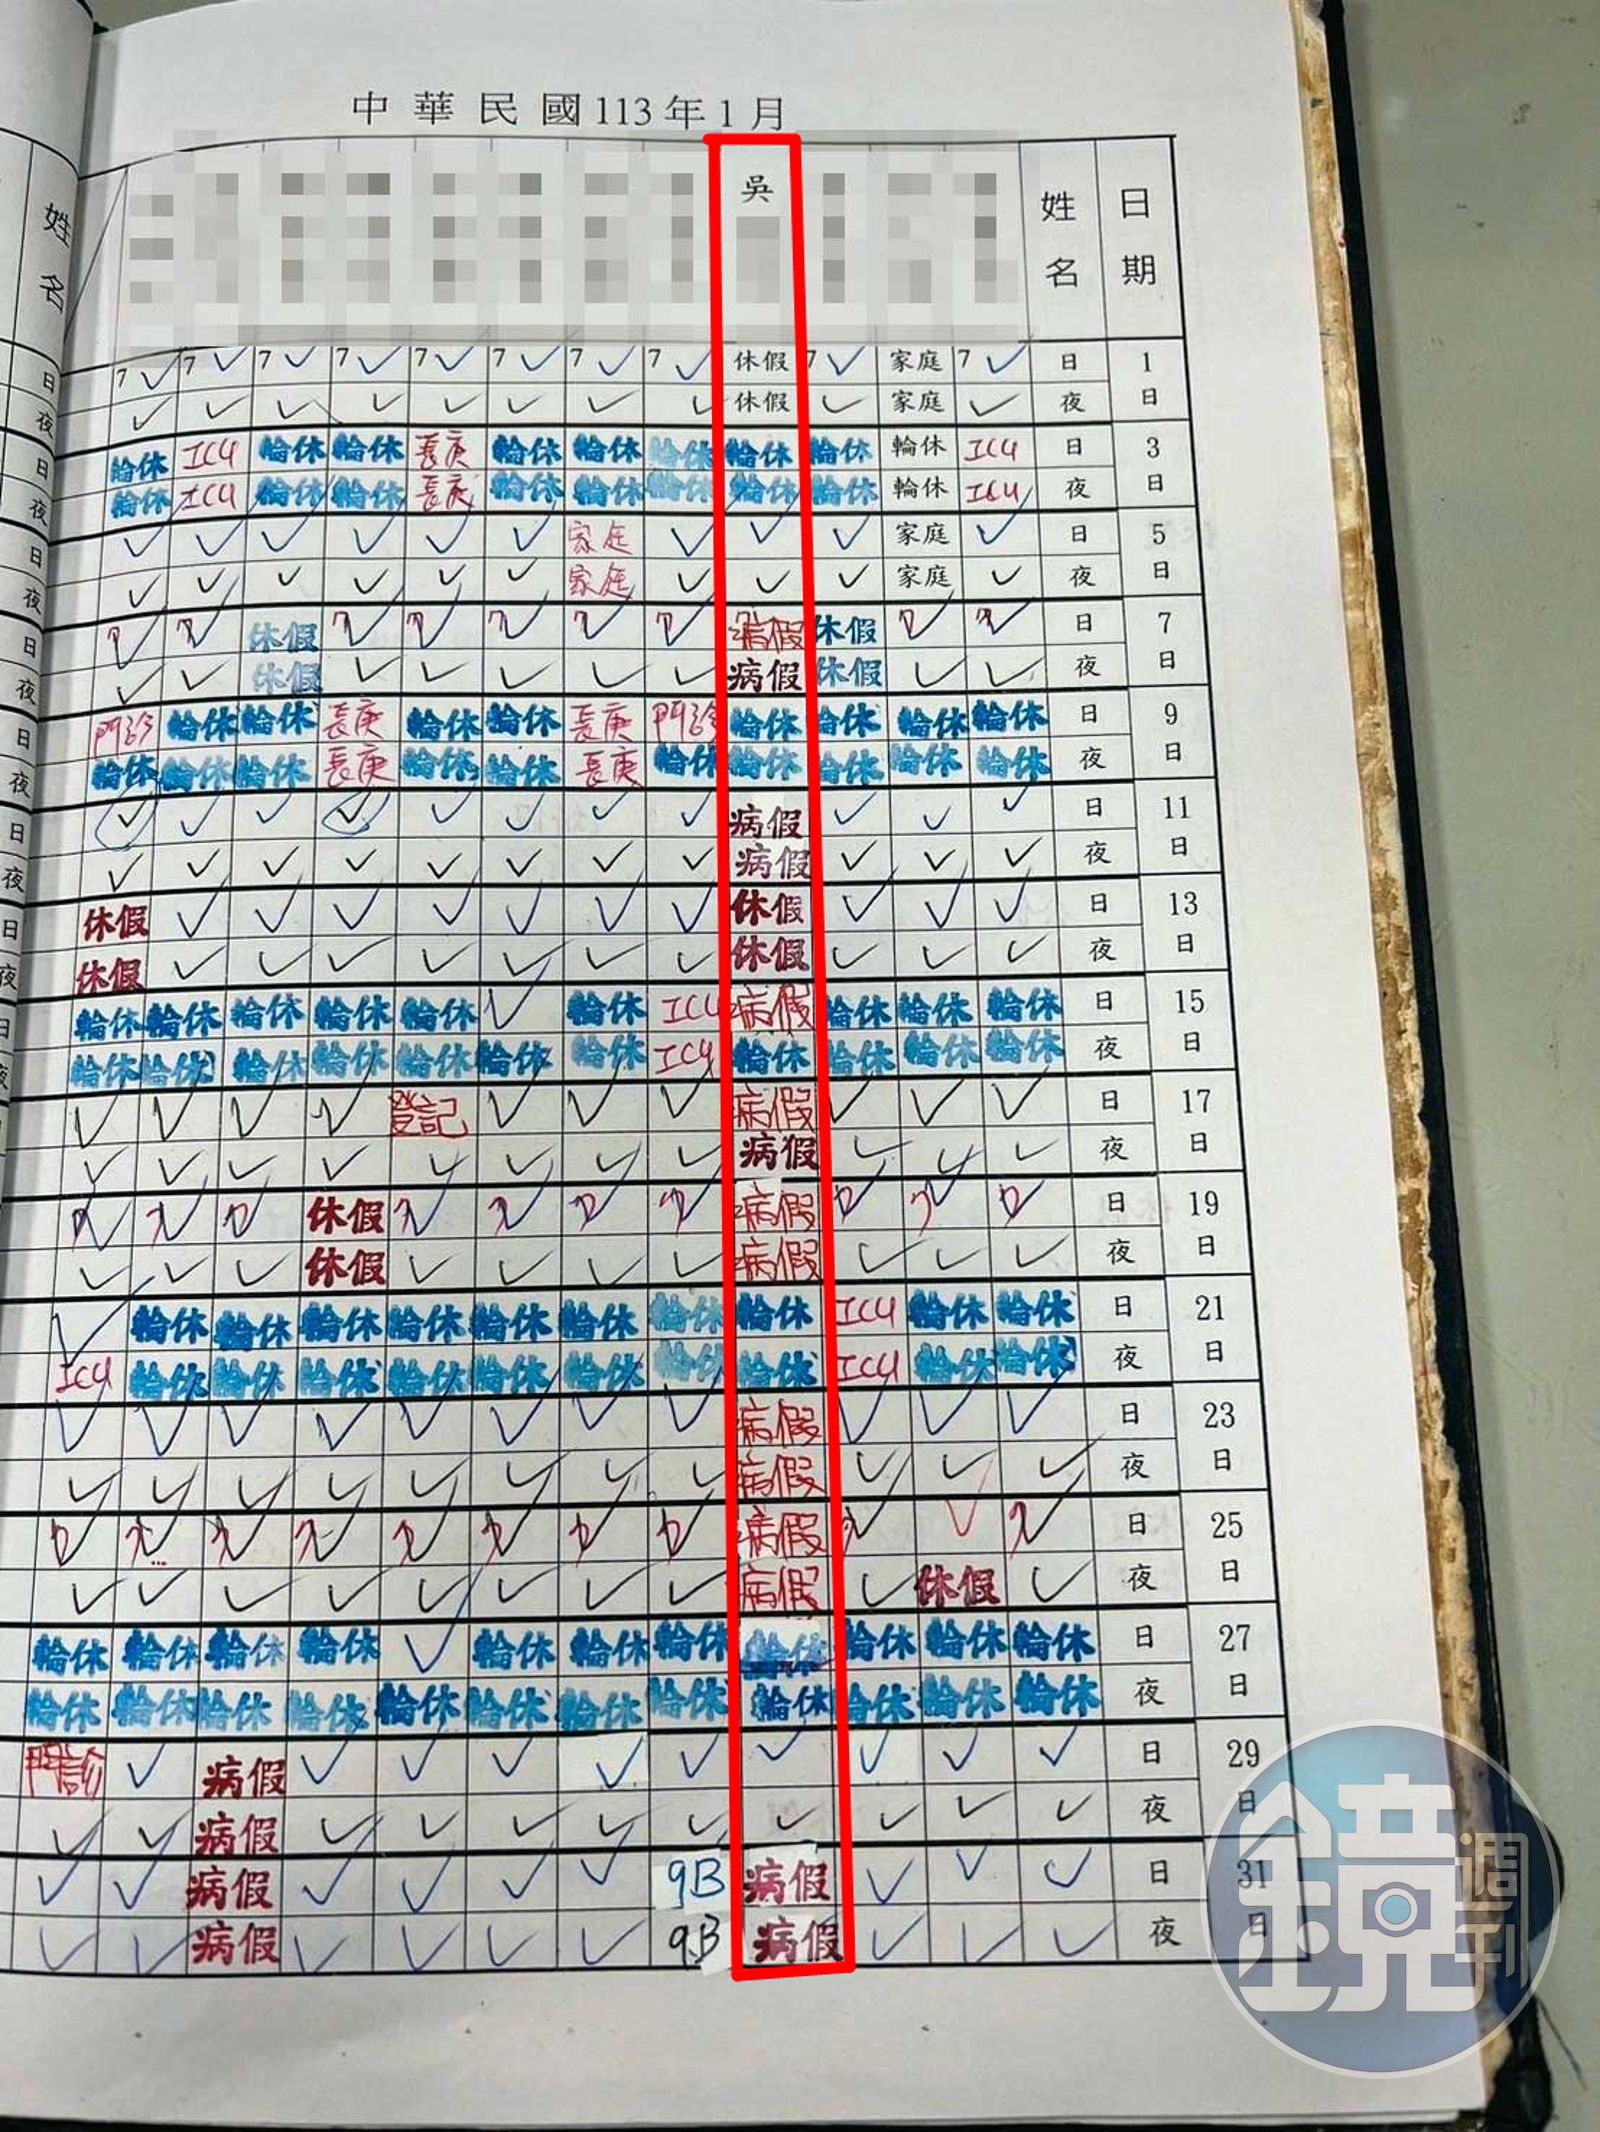 中華民國113年1月
姓名 吳 姓名 日期
日 7 7 7 7 7 7 7 7 休假 7 家庭 7 日 1日
夜 休假 家庭 夜
日 輪休 ICU 輪休 輪休 長庚 輪休 輪休 輪休 輪休 輪休 輪休 ICU 日 3日
夜 輪休 ICU 輪休 輪休 長庚 輪休 輪休 輪休 輪休 輪休 輪休 ICU 夜
日 家庭 家庭 日 5日
夜 家庭 家庭 夜
日 7 7 休假 7 7 7 7 7 病假 休假 7 7 日 7日
夜 休假 病假 休假 夜
日 門診 輪休 輪休 長庚 輪休 輪休 長庚 門診 輪休 輪休 輪休 輪休 日 9日
夜 輪休 輪休 輪休 長庚 輪休 輪休 長庚 輪休 輪休 輪休 輪休 輪休 夜
日 病假 日 11日
夜 病假 夜
日 休假 休假 日 13日
夜 休假 休假 夜
日 輪休 輪休 輪休 輪休 輪休 輪休 ICU 病假 輪休 輪休 輪休 日 15日
夜 輪休 輪休 輪休 輪休 輪休 輪休 輪休 ICU 輪休 輪休 輪休 輪休 夜
登記 病假 日 17日
病假 夜
7 7 7 休假 7 7 7 7 病假 7 7 7 日 19日
休假 病假 夜
輪休 輪休 輪休 輪休 輪休 輪休 輪休 輪休 ICU 輪休 輪休 日 21日
ICU 輪休 輪休 輪休 輪休 輪休 輪休 輪休 輪休 ICU 輪休 輪休 夜
病假 日 23日
病假 夜
7 7 7 7 7 7 7 7 病假 7 7 日 25日
病假 休假 夜
輪休 輪休 輪休 輪休 輪休 輪休 輪休 輪休 輪休 輪休 輪休 日 27日
輪休 輪休 輪休 輪休 輪休 輪休 輪休 輪休 輪休 輪休 輪休 輪休 夜
門診 病假 日 29日
病假 夜
病假 9B 病假 日 31日
病假 9B 病假 夜
鏡週刊